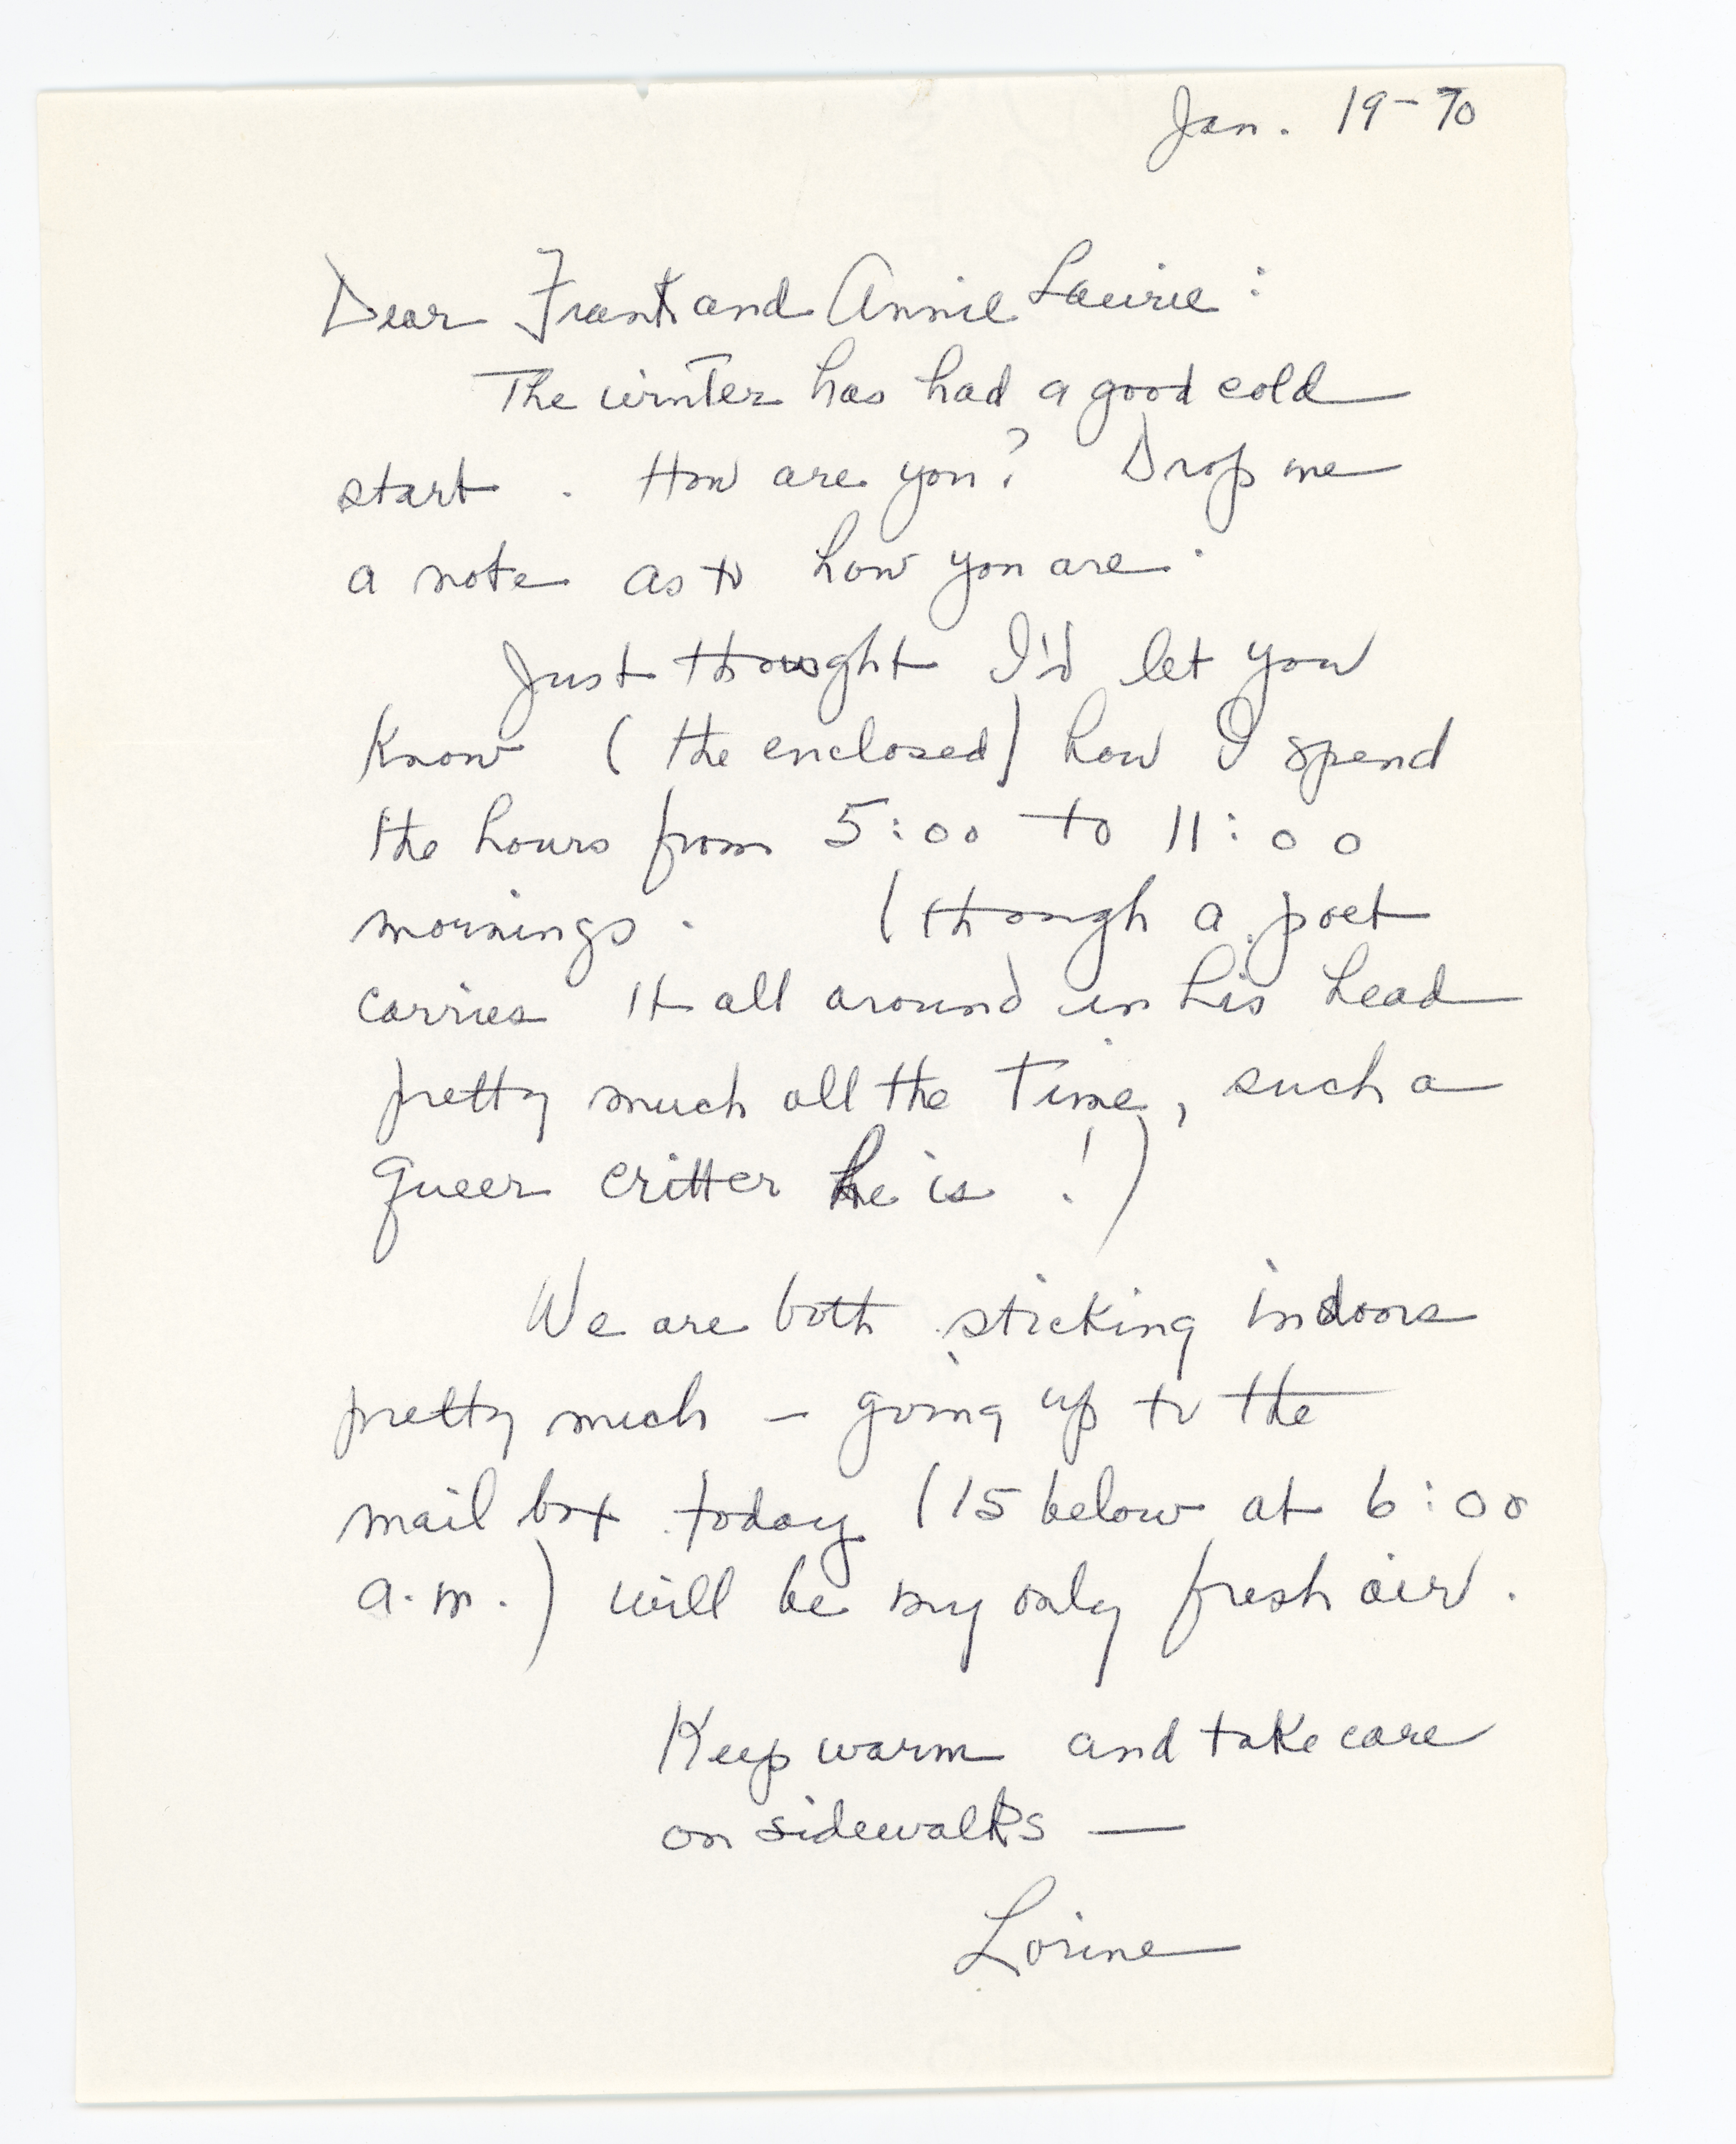 Jan. 19-70
Dear Frank and Annie Laurie:
The winter has had a good cold
start. How are you? Drop me
a note as to how you are.
Just thought I'd let you
know (the enclosed) how I spend
the hours from 5:00 to 11:00
mornings. (though a poet
carries it all around in his head
pretty much all the time, such a
queer critter he is!)
We are both sticking indoors
pretty much – going up to the
mail box today (15 below at 6:00
a.m.) will be my only fresh air.
Keep warm and take care
on sidewalks —
Lorine